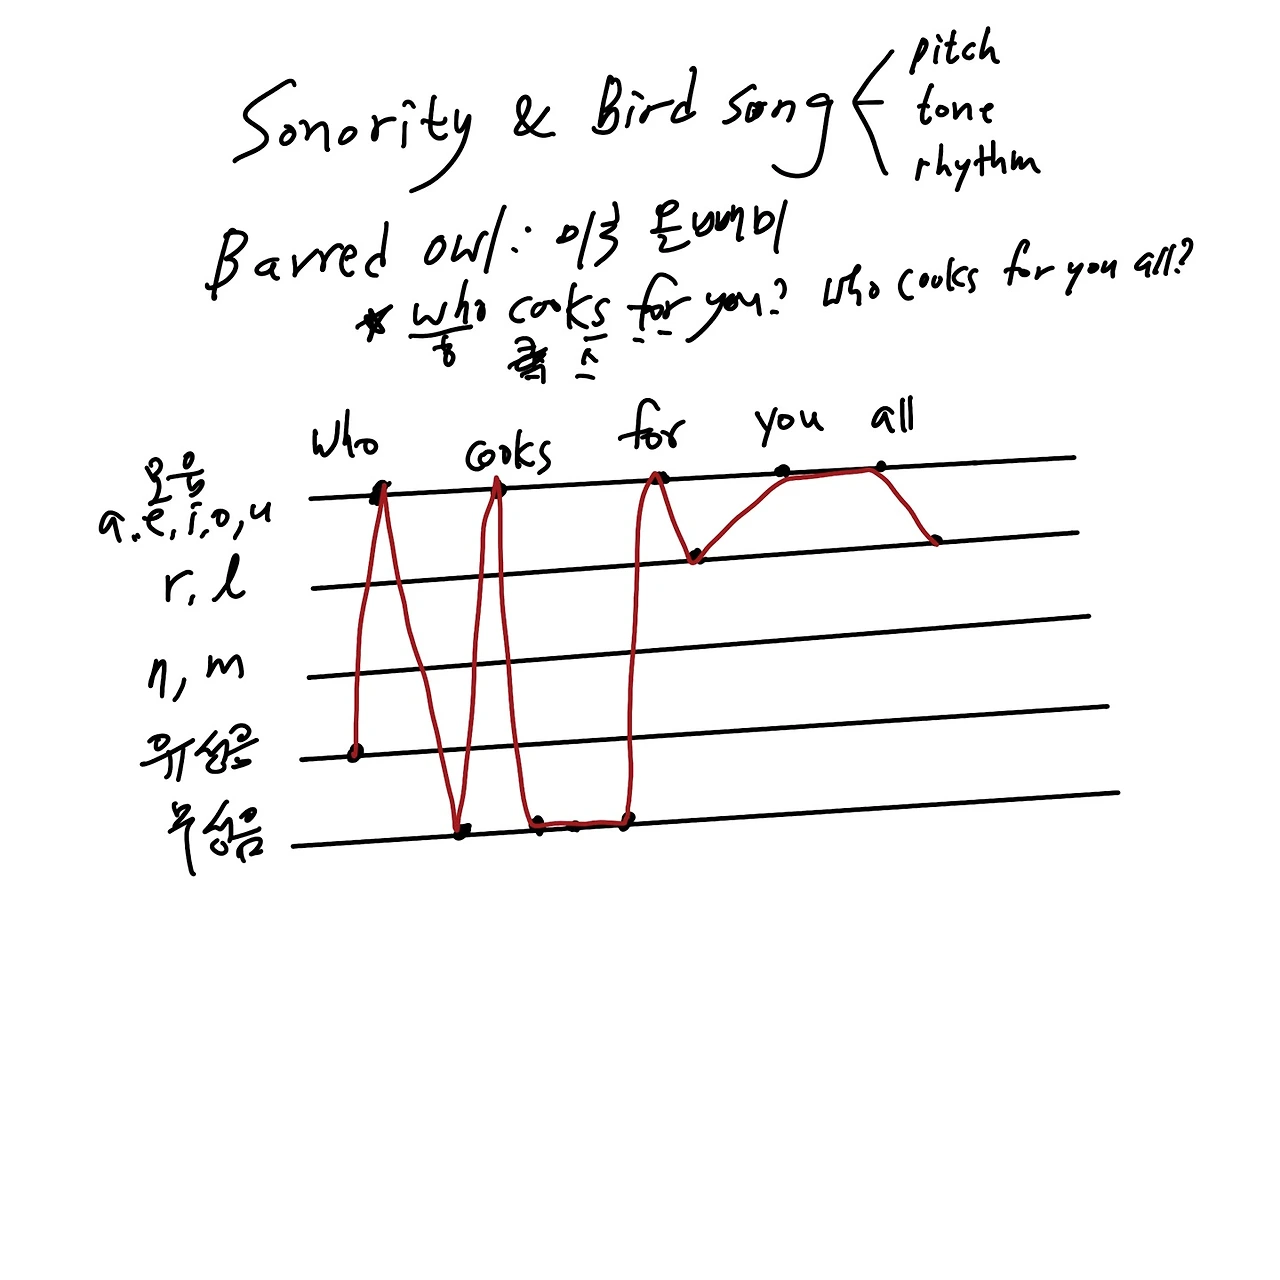 Sonority & Bird song
pitch
tone
rhythm
Barred owl: 미국 올빼미
* who cooks for you? Who cooks for you all?
후 스
who cooks for you all
모음
a, e, i, o, u
r, l
n, m
유성음
무성음